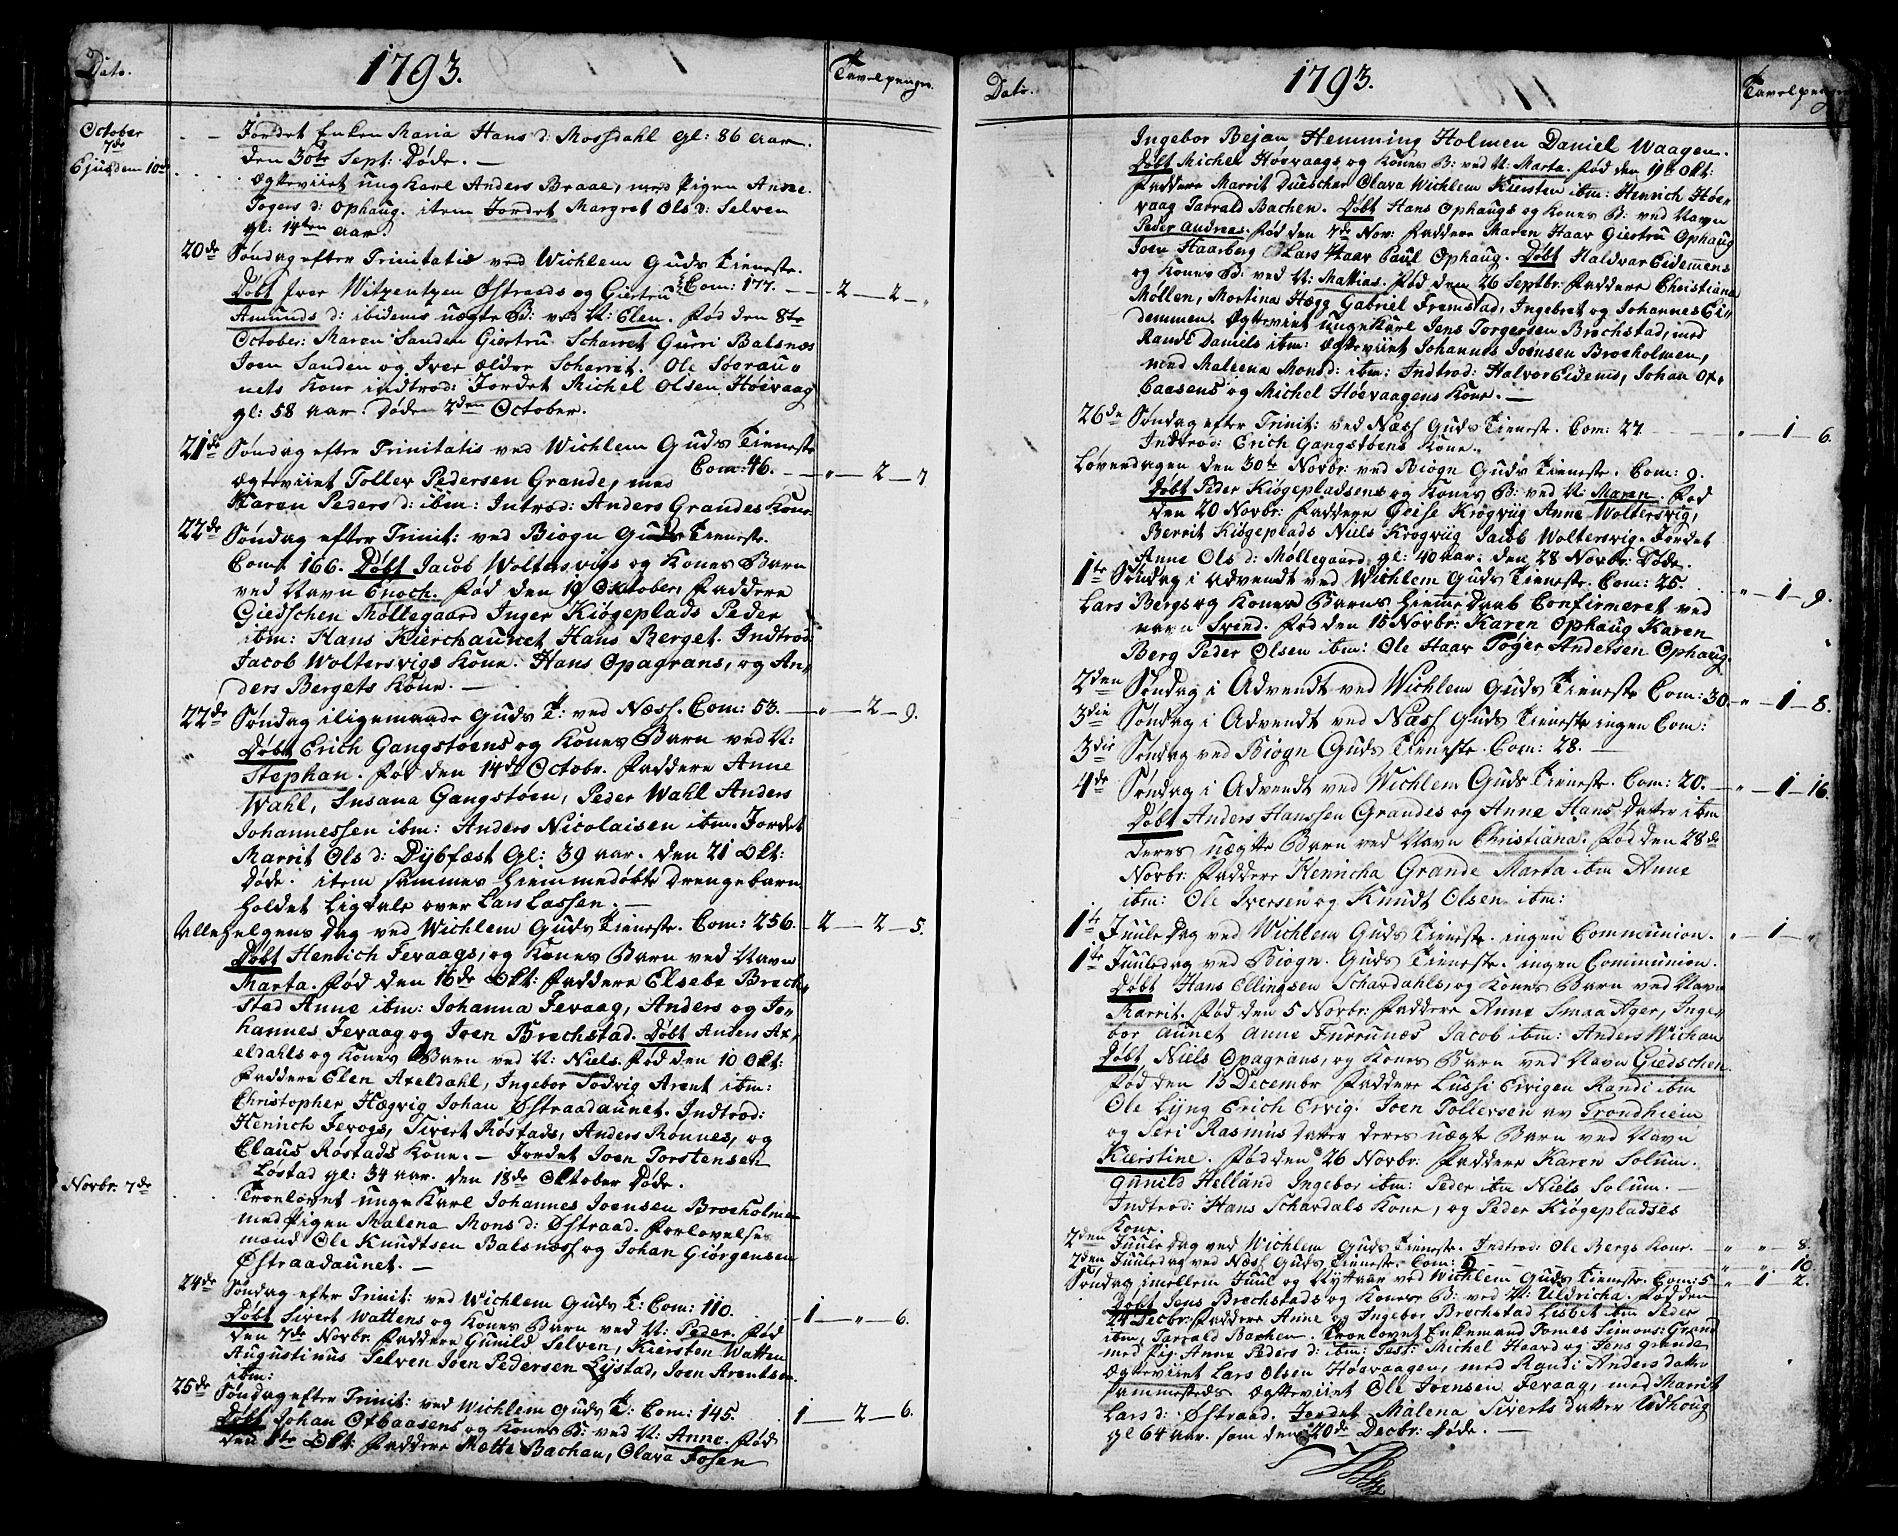 Dato. 1793. Tavelpenger.
October 7de - - Jordet Enken Maria Hans d: Mossdahl gl: 86 aar.
den 30te Sept: Døde. —
Ejusdem 10de . . . . Ægteviiet ungKarl Anders Braae, med Pigen Anne
Togers d: Ophaug. item Jordet Margret Ols d: Selven
gl: 14ten aar.
20de Søndag efter Trinitatis ved Wichlem Guds Tieneste.
Com: 177. — 2 — 2 — "
Døbt Iver Witzentzen Østraads og Giertru
Amunds d: ibidems uægte B: ved N: Elen. Fød den 8te
October: Maren Sanden Giertru Scharret Gurri Balsnæs
Joen Sanden og Iver ældre Scharrit. Ole Søerau-
nets Kone indtrod: Jordet Michel Olsen Høevaag
gl: 58 aar Døde 2den October.
21de Søndag efter Trinitatis ved Wichlem Guds Tieneste
Com: 46. — " — 2 — 7
Ægteviiet Toller Pedersen Grande, med
Karen Peders d: ibm: Introd: Anders Grandes Kone
22de Søndag efter Trinit: ved Biogn Guds Tieneste.
Com: 166. Døbt Jacob Woltersvigs og Kones Barn
ved Navn Enoch. Fød den 19 October, Faddere
Giedschen Møllegaard Inger Kiøgeplads Peder
ibm: Hans Kierchaunet Hans Berget. Indtrod:
Jacob Woltersvigs Kone. Hans Opagrans, og An-
ders Bergets Kone. —
22de Søndag iligemaade Guds T: ved Næss. Com: 53. — " — 2 — 9.
Døbt Erich Gangstøens og Kones Barn ved N:
Stephan. Fød den 14de Octobr. Faddere Anne
Wahl, Susana Gangstøen, Peder Wahl Anders
Johannessen ibm: Anders Nicolaisen ibm. Jordet
Marrit Ols d: Dybfæst Gl: 39 aar. den 21 Okt:
Døde. item sammes hiemmedøbte Drengebarn
holdet Ligtale over Lars Lassen. —
Allehelgens Dag ved Wichlem Guds Tieneste. Com: 256. — 2 — 2 — 5.
Døbt Henrich Fevaags, og Kones Barn ved Navn
Marta. Fød den 16de Okt: Faddere Elsebe Brech-
stad Anne ibm: Johanna Fevaag, Anders og Jo-
hannes Fevaag og Joen Brechstad. Døbt Anders Ax-
eldahls og Kones Barn ved N: Niels. Fød den 10 Okt:
Faddere Elen Axeldahl, Ingebor Todvig Arent ibm:
Christopher Hægvig Johan Østraadaunet. Indtrod:
Henrich Fevogs, Sivert Røstads, Anders Rønnes, og
Claus Røstads Kone. — Jordet Joen Torstensen
Løstad gl: 34 aar. den 18de Oktober Døde.
Novbr. 7de . . . Troelovet unge Karl Johannes Joensen Broeholmen
med Pigen Malena Mons d: Østraad. Forlovelses
mænd Ole Knudtsen Balsnæss og Johan Giørgensen
Østraadaunet. —
24de Søndag efter Trinit: ved Wichlem Guds T: Com: 110. — 1 — " — 6.
Døbt Sivert Wattens og Kones Barn ved N: Peder. Fød
den 7de Novbr. Faddere Gunild Selven, Kiersten Watten
Augustinus Selven Joen Pedersen Lystad, Joen Arentsen
ibm:
25de Søndag efter Trinit: ved Wichlem Guds T: Com: 145. 1 — 2 — 6.
Døbt Johan Otbaasens og Kones B: ved N: Anne. Fød
den 1te Okt. Faddere Mette Bachan, Olava Fosen
Dato. 1793. Tavelpenger
Ingebor Bejan Hemming Holmen Daniel Waagen.
Døbt Michel Høevaags og Kones B: ved N: Marta. Fød den 19de Okt:
Faddere Marrit Duescher Olava Wichlem Kiersten ibm: Henrich Høe-
vaag Tarrald Bachen. Døbt Hans Ophaugs og Kones B: ved Navn
Peder Andreas. Fød den 7de Nov: Faddere Maren Haar Giertru Ophaug
Joen Haarberg Lars Haar Paul Ophaug. Døbt Haldvar Eidemens
og Kones B: ved N: Mathias. Fød den 26 Septbr: Faddere Christiana
Møllen, Mortina Hægg Gabriel Fremstad, Ingebret og Johannes Ei-
demmen. Ægteviiet unge Karl Jens Torgersen Brechstad, med
Rand: Daniels ibm: Ægteviiet Johannes Joensen Broeholmen,
med Maleena Mons d: ibm: Indtrod: Halvor Eidems, Johan Ot-
baasens og Michel Høevaagens Kone. —
26de Søndag efter Trinit: ved Næss Guds Tieneste. Com: 27. — " — 1 — 6.
Indtrod: Erich Gangstøens Kone.
Løverdagen den 30te Novbr: ved Biogn Guds Tieneste. Com: 9.
Døbt Peder Kiøgepladsens og Kones B: ved N: Maren. Fød
den 20 Novbr: Faddere Giese Krogviig Anne Woltersvig,
Berrit Kiøgeplads Niels Krogviig Jacob Woltersvig. Jordet
Anne Ols d: Møllegaard gl: 40 aar. den 28 Novbr: Døde.
1te Søndag i Advendt ved Wichlem Guds Tieneste. Com: 25. — " — 1 — 9.
Lars Bergs og Kones Barns hiemme Daab Confirmeret ved
navn Svend. Fød den 15 Novbr: Karen Ophaug Karen
Berg Peder Olsen ibm: Ole Haar Tøger Andersen Ophaug.
2den Søndag i Advendt ved Wichlem Guds Tieneste Com: 30. — " — 1 — 8.
3die Søndag i Advendt ved Næss Guds Tieneste ingen Com:
3die Søndag ved Biogn Guds Tieneste. Com: 28. —
4de Søndag i Advendt ved Wichlem Guds Tieneste. Com: 20. — " — 1 — 16.
Døbt Anders Hanssen Grandes og Anne Hans Datter ibm
deres uægte Barn ved Navn Christiana. Fød den 28de
Novbr: Faddere Henricha Grande Marta ibm Anne
ibm: Ole Iversen og Knudt Olsen ibm:
1te Juule Dag ved Wichlem Guds Tieneste. ingen Communion. " — 1 — "
1te Juuledag ved Biogn. Guds Tieneste. ingen Communion.
Døbt Hans Ellingsen Schardahls, og Kones Barn ved Navn
Marrit. Fød den 5 Novbr: Faddere Anne Smaa Ager, Inge-
bor Aunet Anne Furrunæs Jacob ibm: Anders Wichan
Døbt Niels Opagrans, og Kones Barn ved Navn Giedschen
Fød den 13 Decembr Faddere Lussi Ervigen Randi ibm
Ole Lyng Erich Ervig. Joen Tollersen av Trondhiem
og Seri Rasmus Datter deres uægte Barn ved Navn
Kierstine. Fød den 26 Novbr: Faddere Karen Solum.
Gunild Helland Ingebor ibm: Peder ibm Niels Solum. —
Indtrod: Hans Schardals Kone, og Peder Kiøgepladses
Kone.
2den Juule Dag ved Wichlem Guds Tieneste. Indtrod: Ole Bergs Kone. — " " — 8.
2den Juuledag ved Næss Guds Tieneste. Com: — " " — 10
Søndag imellem Juul og Nyt aar ved Wichlem Guds Tieneste. Com: 5 — " 1 2.
Døbt Jens Brechstads og Kones B: ved N: Uldricha. Fød den
24 Decbr: Faddere Anne og Ingebor Brechstad Lisbet ibm Peder
ibm, Tarrald Bachen. Troelovet Enkemand Tomes Simons: Grand
med Pig: Anne Peders d: ibm: Test: Michel Haard og Jens Grande
Ægteviiet Lars Olsen Høevaagen, med Randi Anders datter
sammesteds Ægteviiet Ole Joensen Fevaag, med Marrit
Lars d: Østraad. Jordet Malena Siverts datter Udhoug
gl 64 aar. som den 20de Decbr: Døde. —